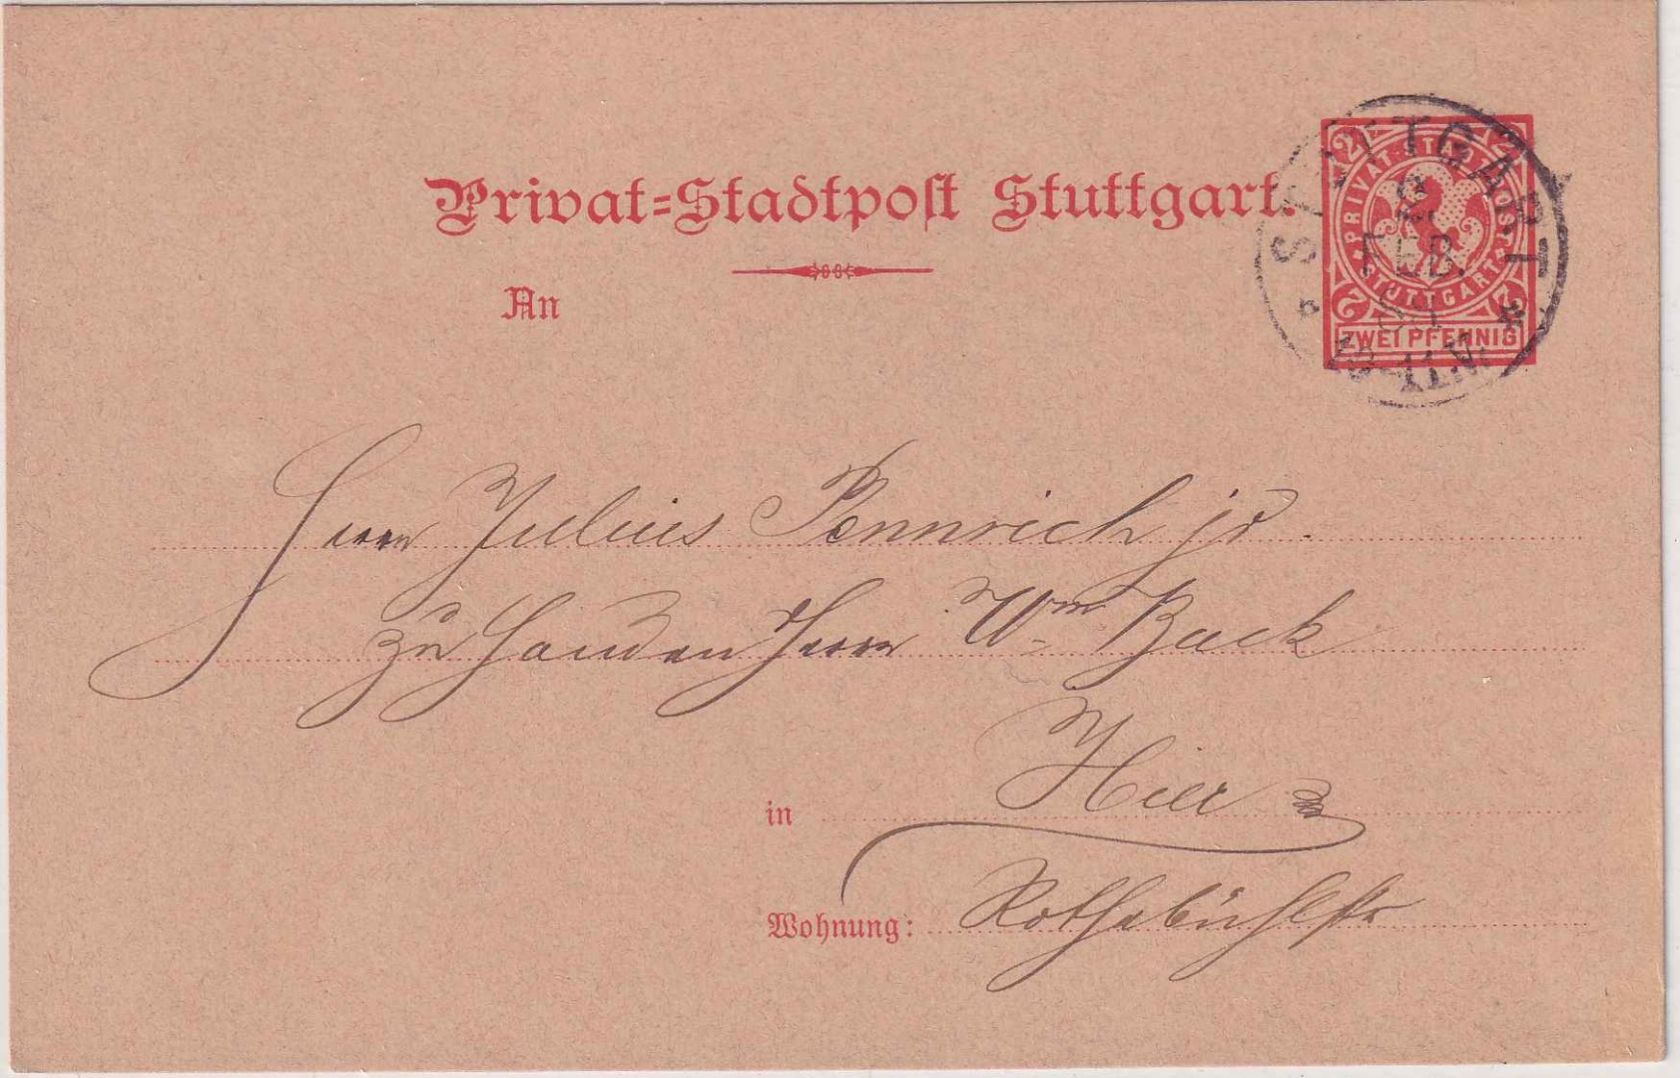 Privat=Stadtpost Stuttgart.
2 2
PRIVAT-STADTPOST
STUTTGART
2 2
ZWEI PFENNIG
STUTTGART
FEB.
An
Herrn Julius Pennrich jr.
zu Handen Herrn Wm Back
in Hier
Wohnung: Rothebühlstr